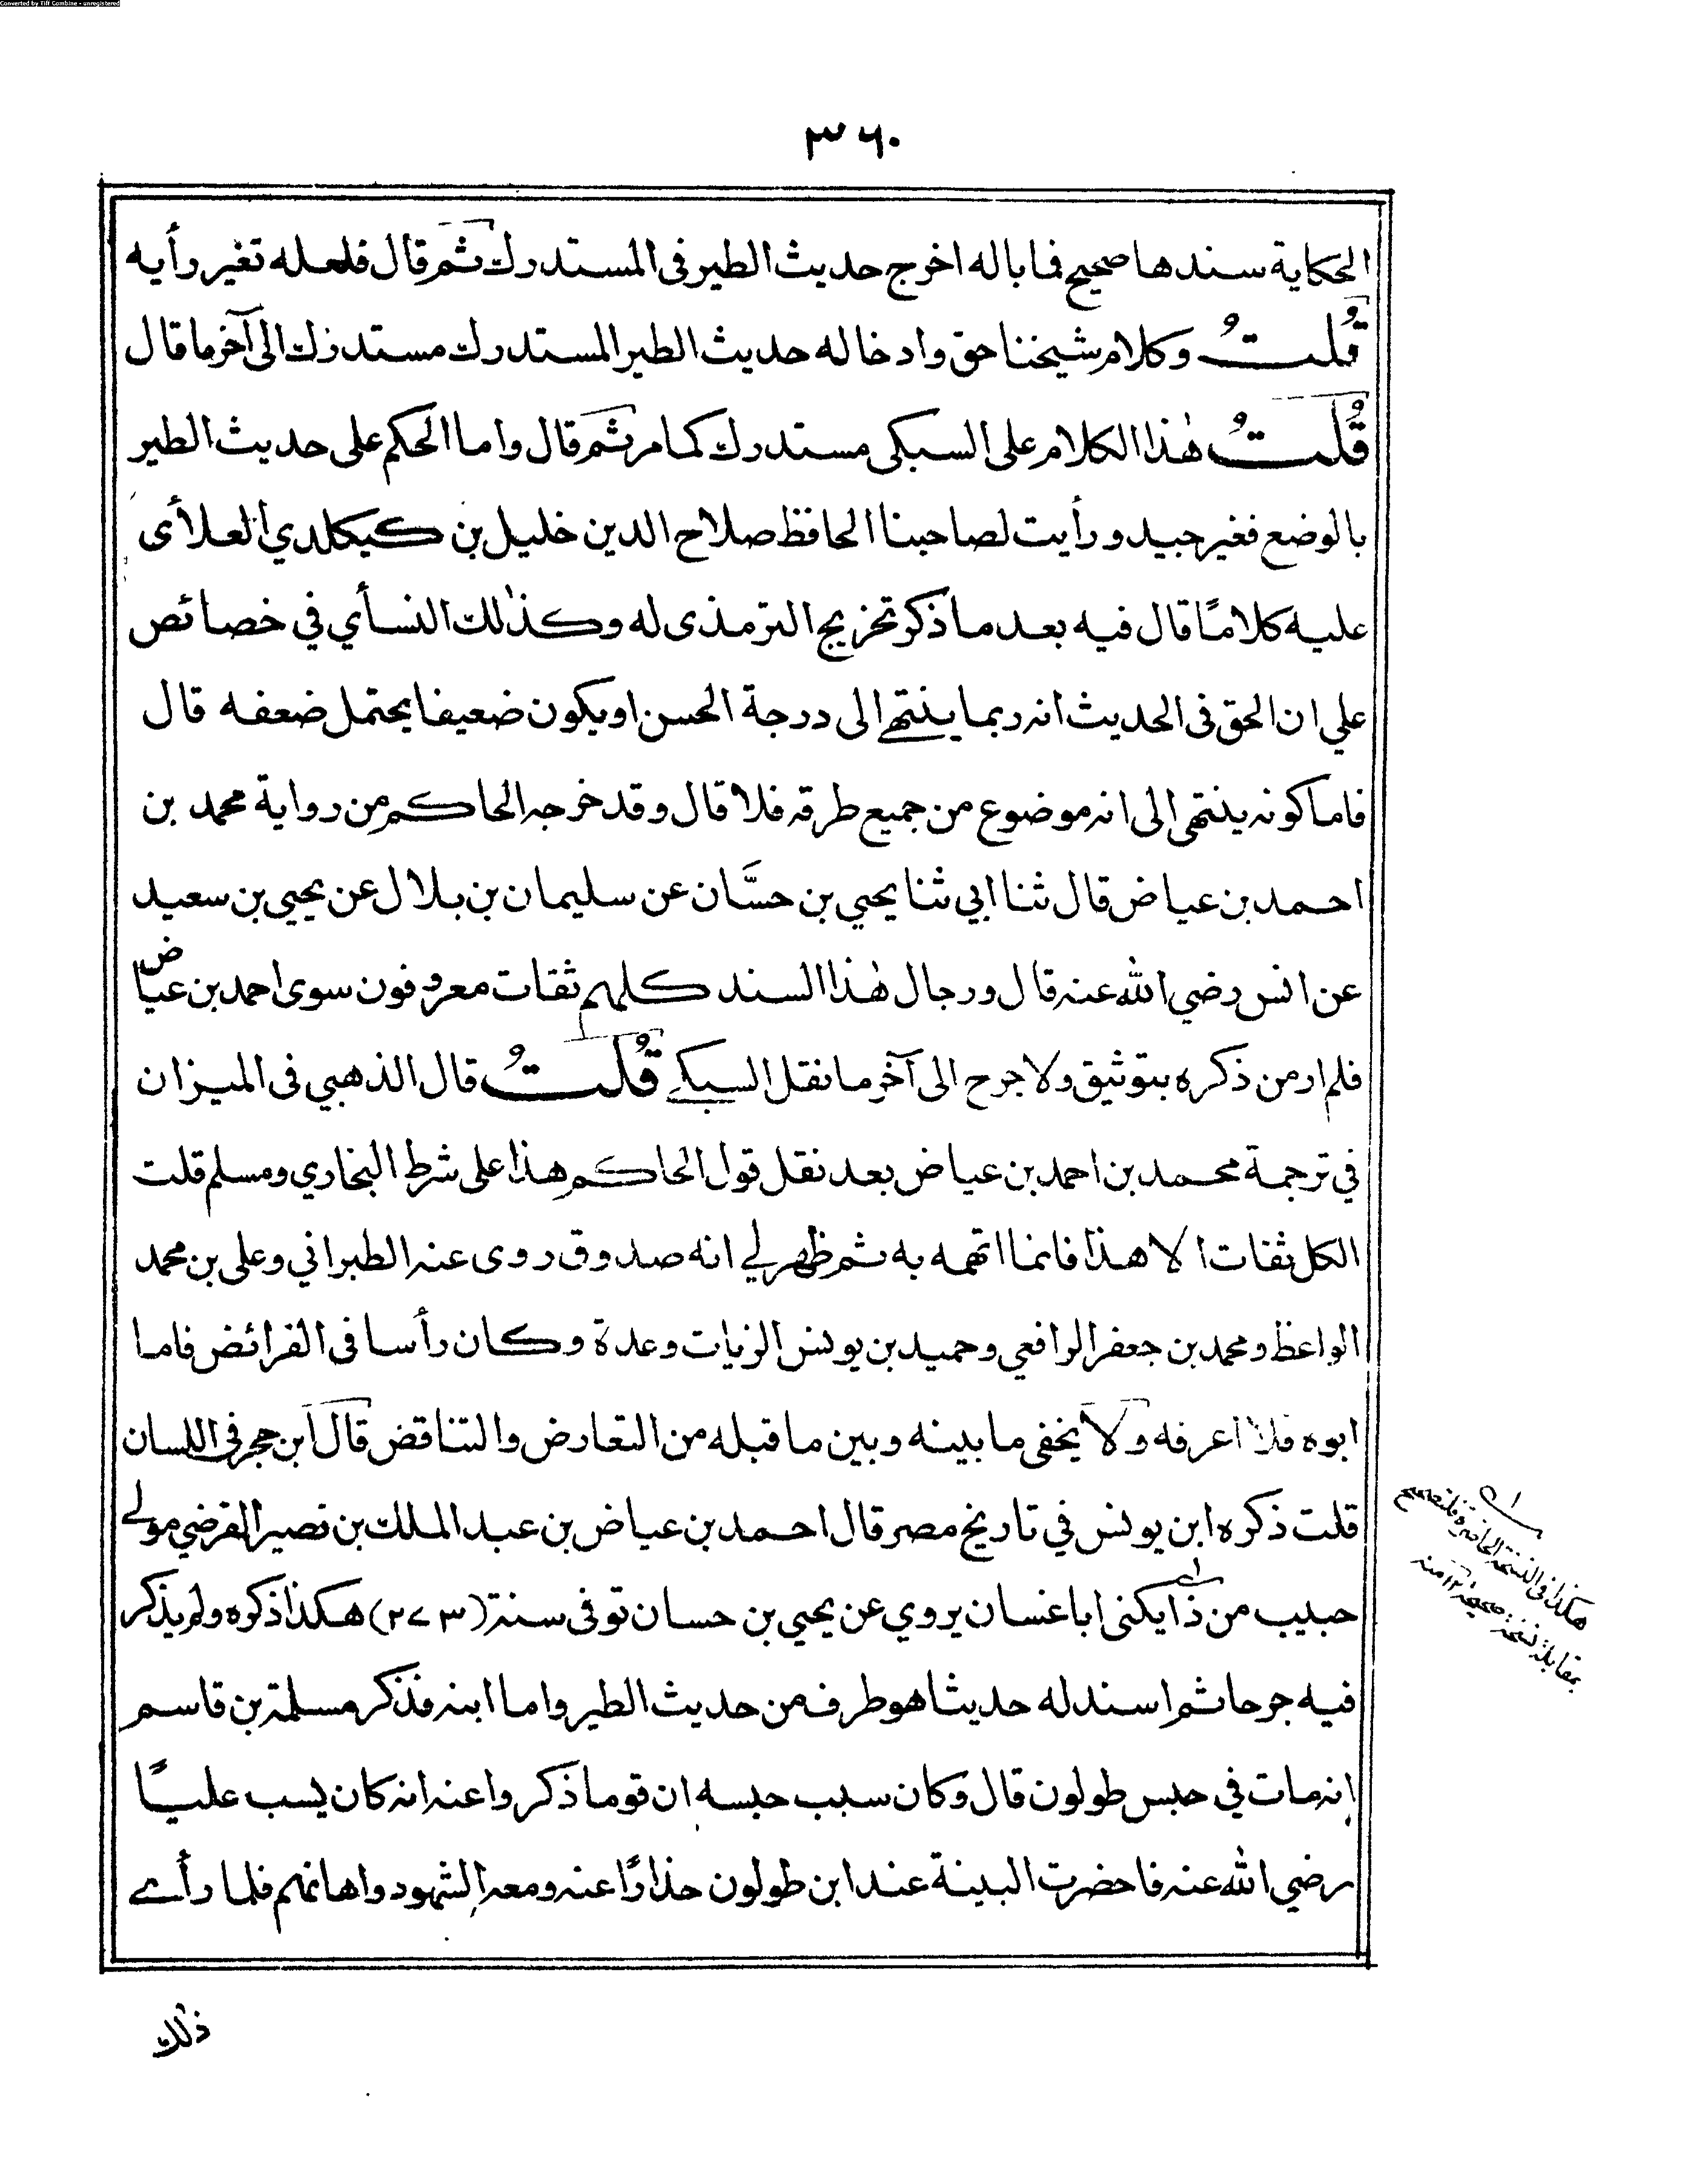 Converted by Tiff Combine - unregistered
٣٦٠
الحكاية سندها صحيح فما باله اخرج حديث الطير فى المستدرك ثم قال فلعله تغير رأيه
قُلتُ وكلام شيخنا حق وادخاله حديث الطير المستدرك مستدرك الى آخر ما قال
قُلتُ هذا الكلام على السبكى مستدرك كما مر ثم قال واما الحكم على حديث الطير
بالوضع فغير جيد ورأيت لصاحبنا الحافظ صلاح الدين خليل بن كيكلدي العلأى
عليه كلامًا قال فيه بعد ما ذكر تخريج الترمذى له وكذلك النسأي في خصائص
علي ان الحق فى الحديث انه ربما ينتهى الى درجة الحسن او يكون ضعيفا يحتمل ضعفه قال
فاما كونه ينتهى الى انه موضوع من جميع طرقه فلا قال وقد خرجه الحاكم من رواية محمد بن
احمد بن عياض قال ثنا ابي ثنا يحيي بن حسَّان عن سليمان بن بلال عن يحيي بن سعيد
عن انس رضي الله عنه قال ورجال هذا السند كلهم ثقات معروفون سوى احمد بن عياض
فلم ار من ذكره بتوثيق ولا جرح الى آخر ما نقل السبكے قُلتُ قال الذهبي فى الميزان
في ترجمة محمد بن احمد بن عياض بعد نقل قول الحاكم هذا على شرط البخاري ومسلم قلت
الكل ثقات الا هذا فانما اتهمه به ثم ظهر لي انه صدوق روى عنه الطبراني وعلى بن محمد
الواعظ ومحمد بن جعفر الرافعي وحميد بن يونس الزيات وعدة وكان رأسا فى الفرائض فاما
ابوه فلا اعرفه ولا يخفى ما بينه وبين ما قبله من التعارض والتناقض قال ابن حجر فى اللسان
قلت ذكره ابن يونس في تاريخ مصر قال احمد بن عياض بن عبد الملك بن نصير الفرضي مولے
حبيب من ذا يكنى ابا غسان يروي عن يحيي بن حسان توفى سنة (٢٧٣) هكذا ذكره ولم يذكر
فيه جرحا ثم اسند له حديثا هو طرف من حديث الطير واما ابنه فذكر مسلمة بن قاسم
انه مات في حبس طولون قال وكان سبب حبسه ان قوما ذكروا عنه انه كان يسب عليًا
رضي الله عنه فاحضرت البينة عند ابن طولون حذارًا عنه ومعه الشهود واهانهم فلما رأے
هكذا فى النسخة الحاضرة فلتصحح
بمقابلة نسخة صحيحة ١٢ منه
ذلك